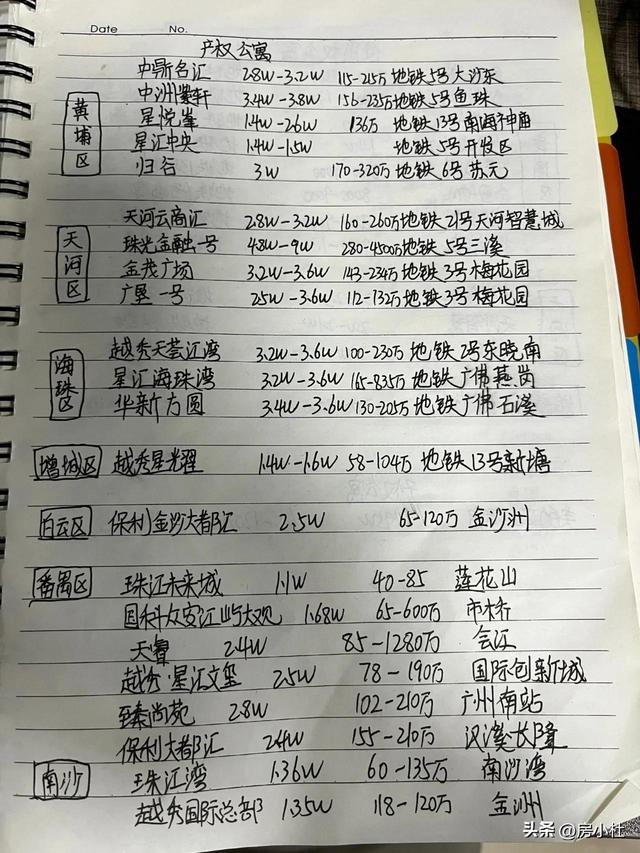 Date No.
产权公寓
中鼎名汇 2.8W-3.2W 115-215万 地铁5号大沙东
黄埔区 中洲紫轩 3.4W-3.8W 156-235万 地铁5号鱼珠
星悦峯 1.4W-2.6W 136万 地铁13号南海神庙
星汇中央 1.4W-1.5W 地铁5号开发区
归谷 3W 170-320万 地铁6号苏元
天河云商汇 2.8W-3.2W 160-260万 地铁21号天河智慧城
天河区 珠光金融一号 4.8W-9W 280-4500万 地铁5号三溪
金茂广场 3.2W-3.6W 143-234万 地铁3号梅花园
广垦一号 2.5W-3.6W 112-732万 地铁3号梅花园
越秀天荟江湾 3.2W-3.6W 100-230万 地铁2号东晓南
海珠区 星汇海珠湾 3.2W-3.6W 165-835万 地铁广佛燕岗
华新方圆 3.4W-3.6W 130-205万 地铁广佛石溪
增城区 越秀星光熠 1.4W-1.6W 58-104万 地铁13号新塘
白云区 保利金沙大都汇 2.5W 65-120万 金沙洲
番禺区 珠江未来城 1.1W 40-85 莲花山
国科众安江屿大观 1.68W 65-600万 市桥
天睿 2.4W 85-1280万 会江
越秀·星汇文玺 2.5W 78-190万 国际创新城
臻尚苑 2.8W 102-210万 广州南站
保利大都汇 2.4W 155-210万 汉溪长隆
南沙 珠江湾 1.36W 60-135万 南沙湾
越秀国际总部 1.35W 118-120万 金洲
头条 @房小杜